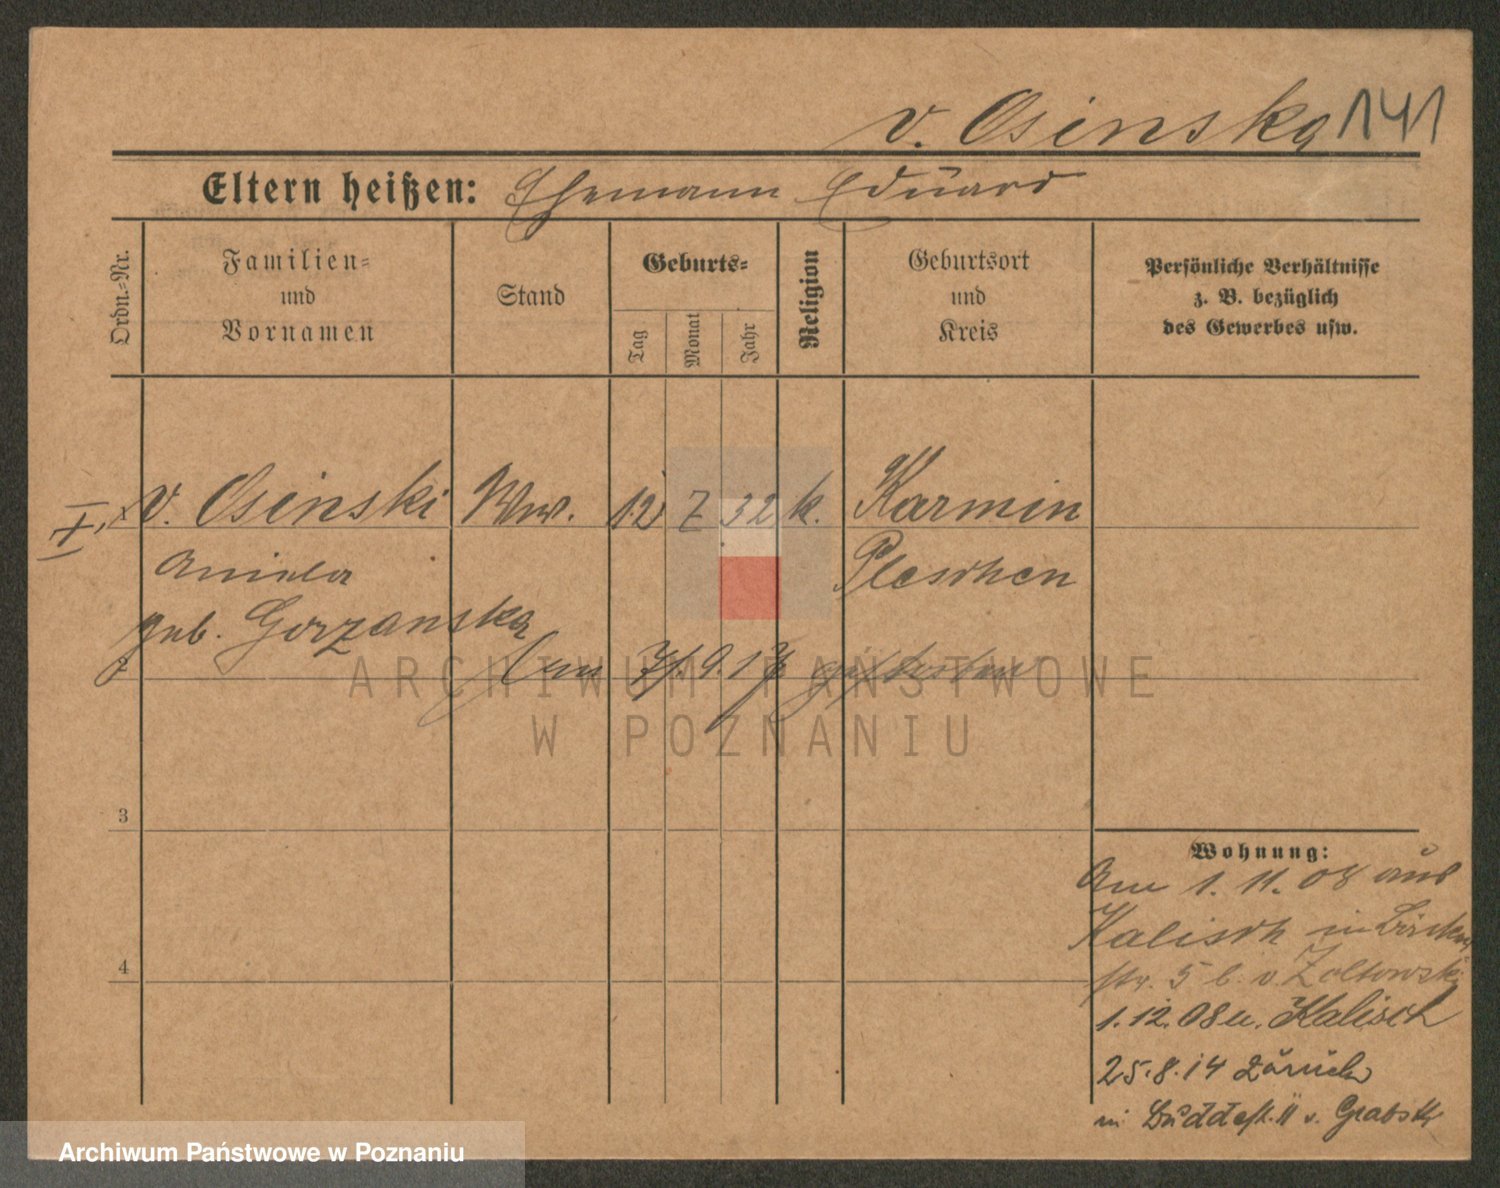 v. Osinska 141
Eltern heißen: Ehemann Eduard
Ordn.-Nr.
Familien-
und
Vornamen
Stand
Geburts-
Tag
Monat
Jahr
Religion
Geburtsort
und
Kreis
Persönliche Verhältnisse
z. B. bezüglich
des Gewerbes usw.
v. Osinski Wwe. 12 7 32 k. Karmin
Aniela Pleschen
geb. Gorzanska
2
gestorben
ARCHIWUM PAŃSTWOWE
W POZNANIU
3
Wohnung:
Am 1. 11. 08 aus
Kalisch in
4
str. 5 b. v. Zoltowski
1.12.08 u. Kalisch
25.8.14 zurück
in v.
Archiwum Państwowe w Poznaniu